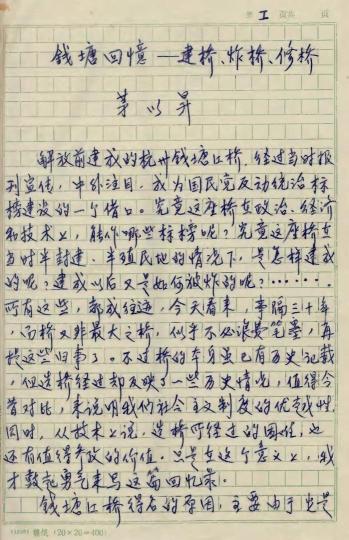 第 1 页共 页
钱塘回憶——建桥、炸桥、修桥
茅以昇
解放前建成的杭州钱塘江桥,经过当时报
刊宣传,中外注目,成为国民党反动统治标
榜建设的一个借口。究竟这座桥在政治、经济
和技术上,能作哪些标榜呢?究竟这座桥在
当时半封建、半殖民地的情况下,是怎样建成
的呢?建成以后又是如何被炸的呢?………
所有这些,都成往迹,今天看来,事隔三十年
,而桥又非最大之桥,似乎不必浪费笔墨,再
提这些旧事了。不过桥的本身虽已有历史记载
,但造桥经过却反映了一些历史情况,值得今
昔对比,来说明我们社会主义制度的优越性。
同时,从技术上说,造桥所经过的困难,也
还有值得参考的价值。只是在这个意义上,我
才鼓起勇气来写这篇回忆录。
钱塘江桥得名的原因,主要由于它是
(20×20=400)